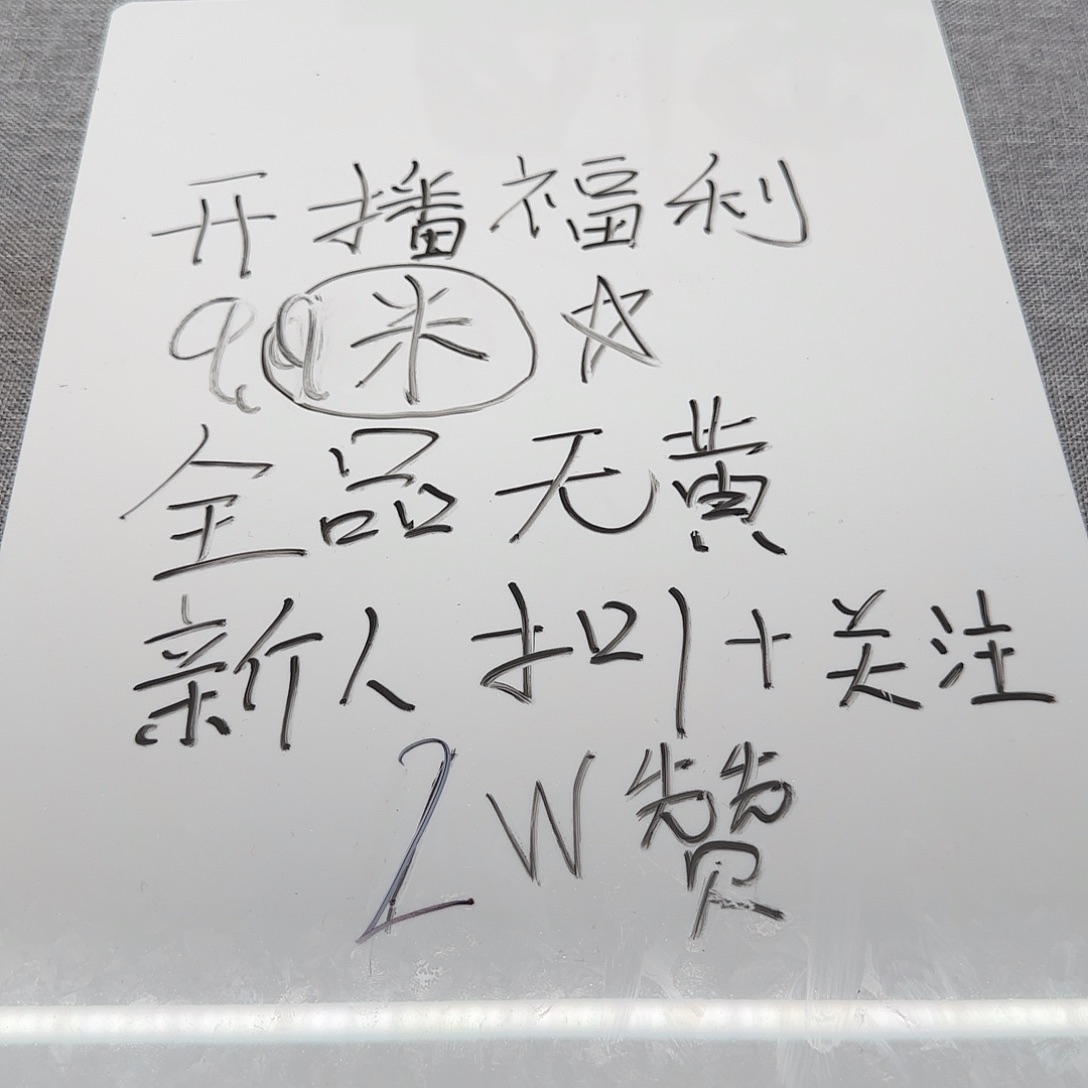 开播福利
9.9米☆
全品无黄
新人扣1+关注
2W赞